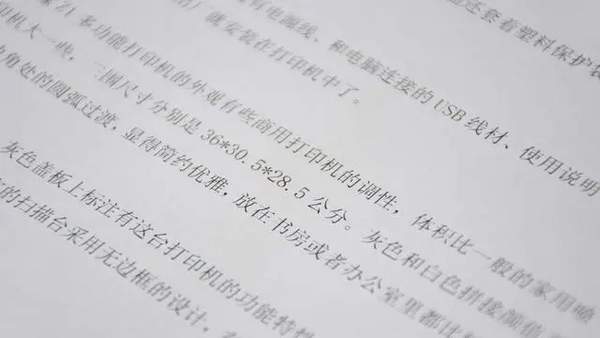 还套着塑料保护袋
有电源线、和电脑连接的 USB 线材、使用说明
就安装在打印机中了。
多功能打印机的外观有些商用打印机的调性，体积比一般的家用喷
印机大一些，三围尺寸分别是 36*30.5*28.5 公分。灰色和白色拼接颜值
边角处的圆弧过渡，显得简约优雅，放在书房或者办公室里都比
灰色盖板上标注有这台打印机的功能特性
的扫描台采用无边框的设计，